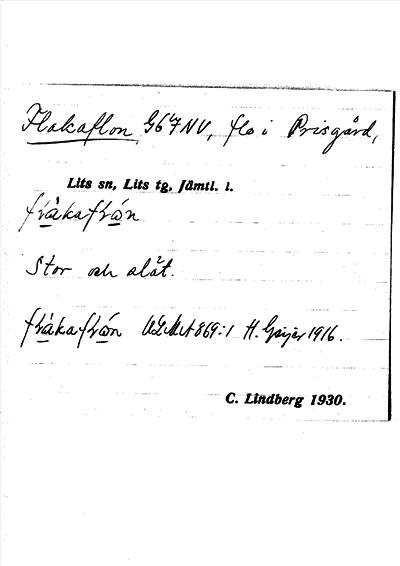 Flakaflon, G67NV, flo i Prisgård,
Lits sn, Lits tg, Jämtl. l.
fråkafrån
Stor och slät.
fråkafrån 869:1 H. Geijer 1916.
C. Lindberg 1930.